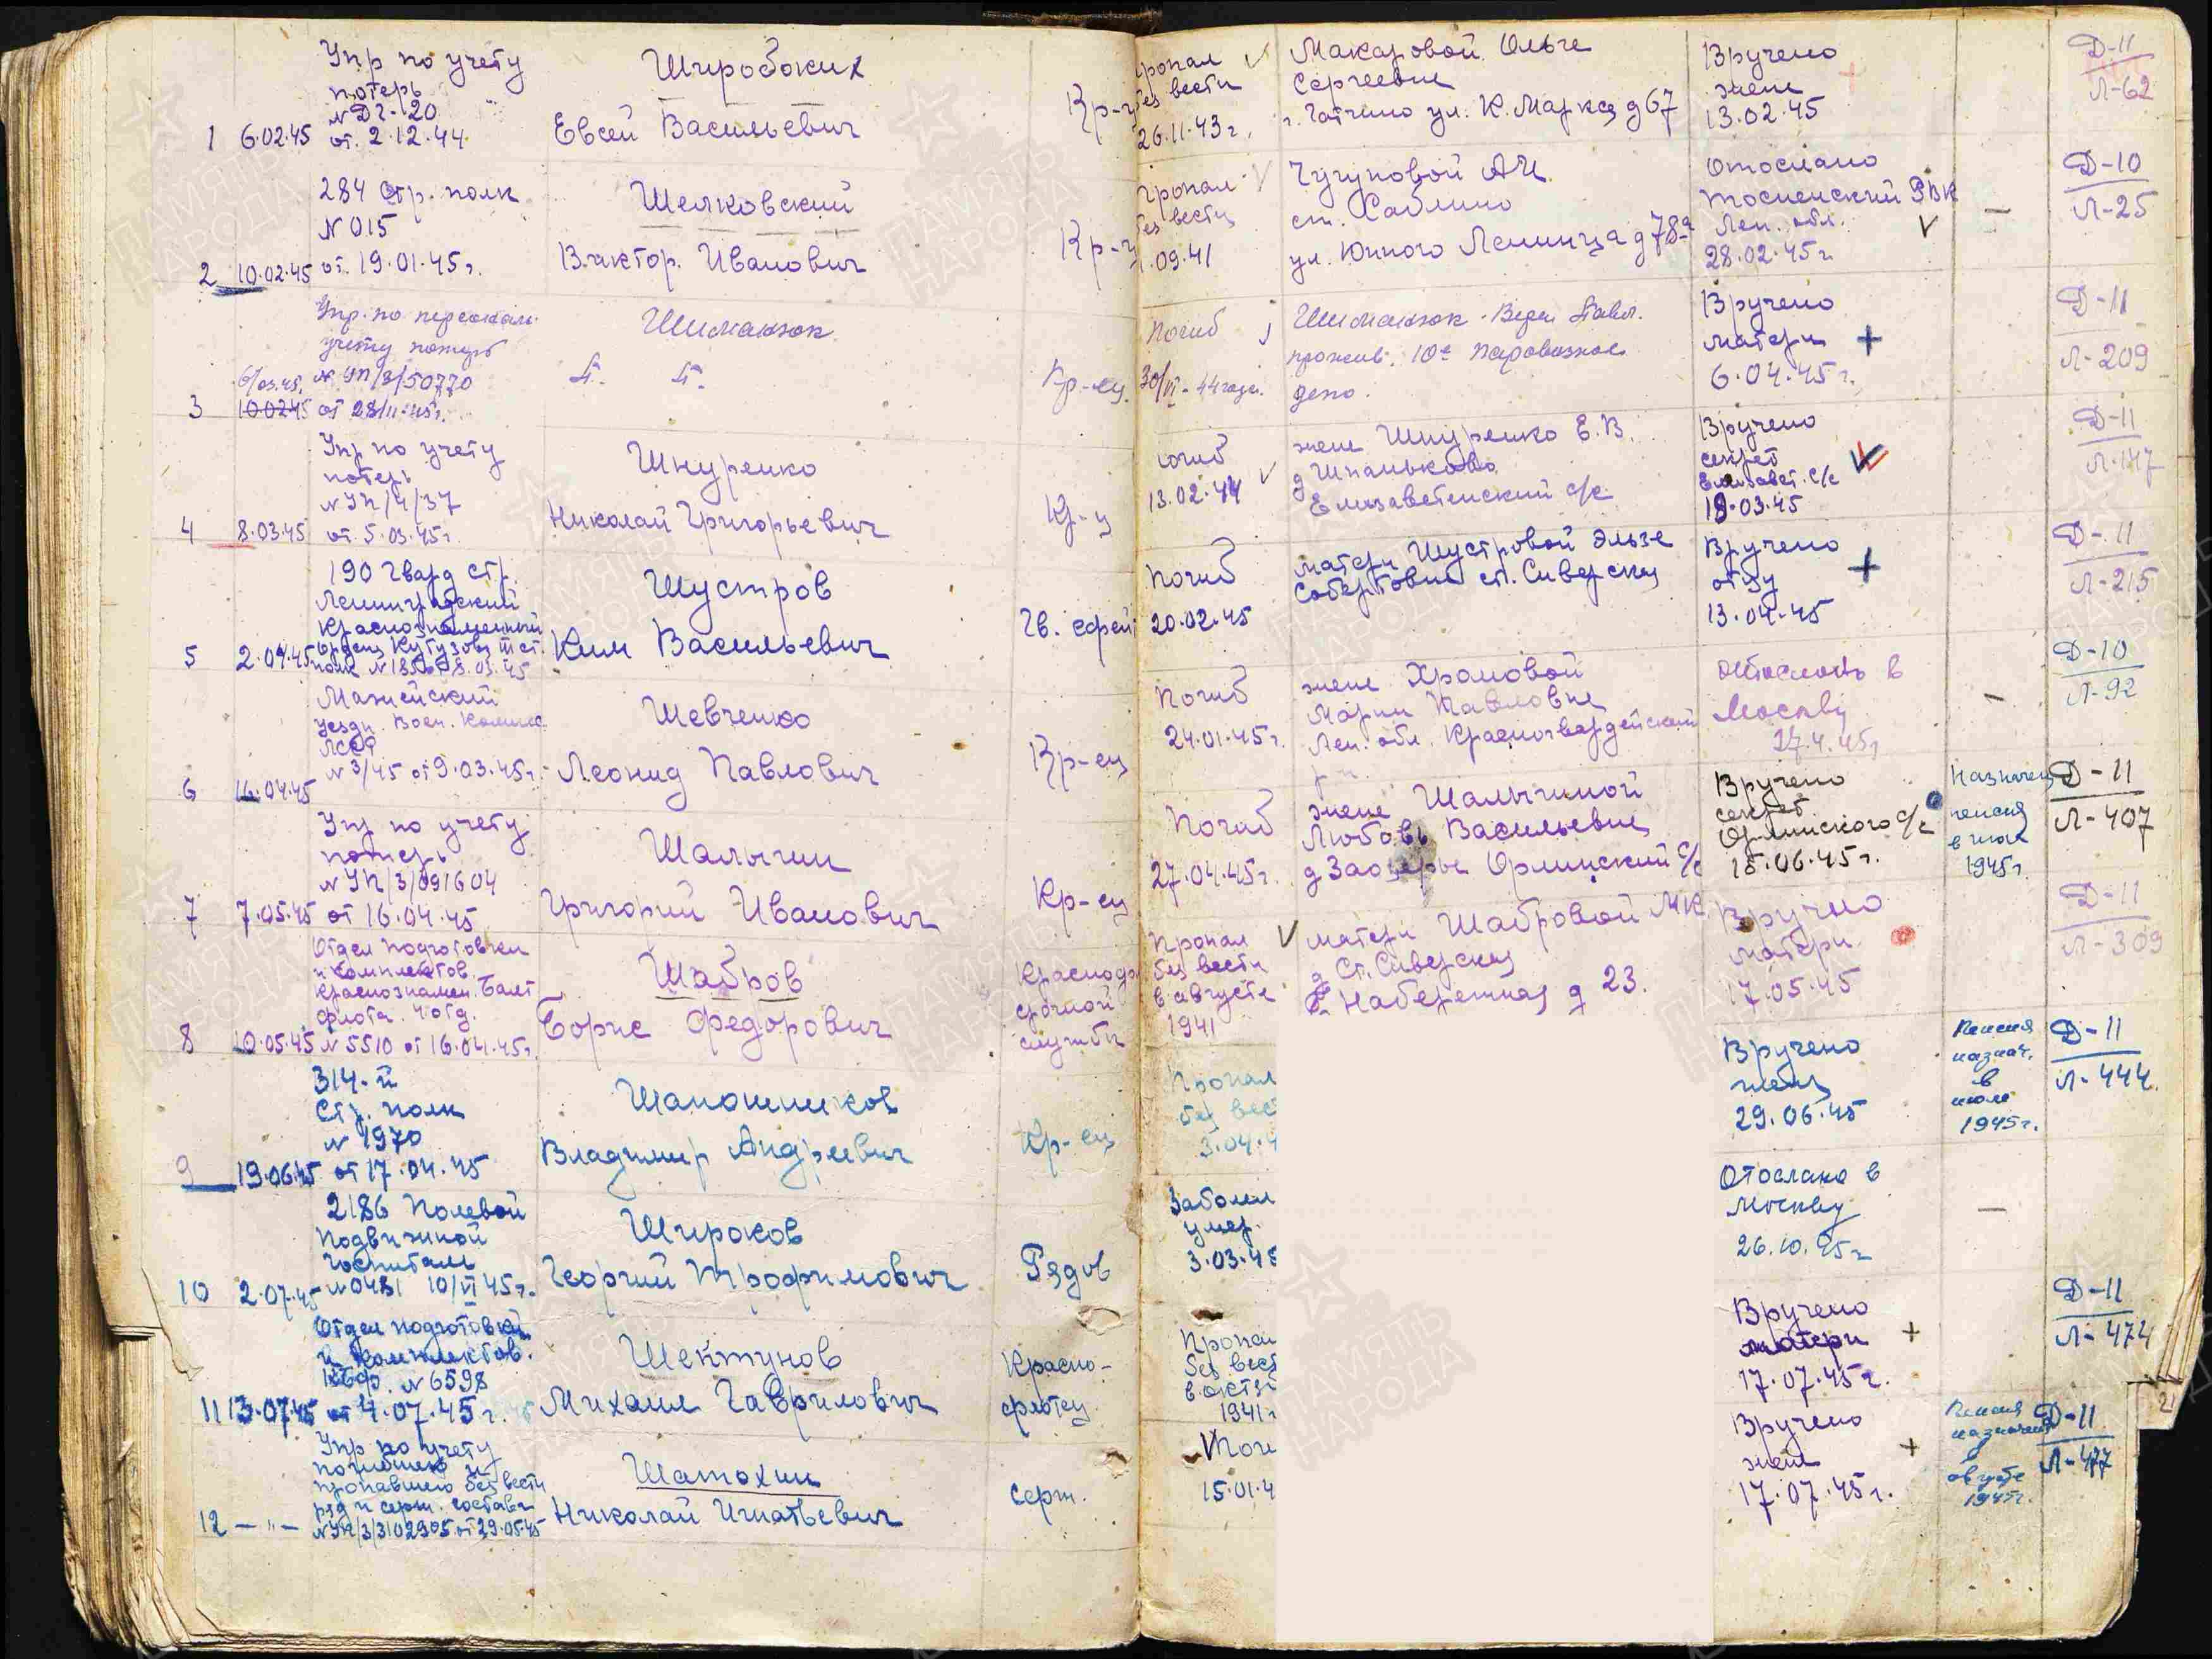 Упр по учету
потерь
№ Dг-20
1 6.02.45 от. 2.12.44
Широбоких
Евсей Васильевич
Кр-ц
пропал
без вести
26.11.43г.
Макаровой Ольге
Сергеевне
г. Гатчино ул. К. Маркса д 67
Вручено
жене
13.02.45
Д-11
Л-62
284 Стр. полк
№ 015
2 10.02.45 от. 19.01.45г.
Шелковский
Виктор Иванович
Кр-ц
пропал
без вести
09.41
Чугуновой А.И.
ст. Саблино
ул. Юнного Ленинца д 78а
Отослано
Тосненский РВК
Лен. обл.
28.02.45г
Д-10
Л-25
Упр. по персональ.
учету потерь
6/03.45. № УП/3/50770
3 10.02.45 от 28/II-45г.
Шиманюк
П. П.
Кр-ец.
Погиб
30/VI-44 года.
Шиманюк Вера Павл.
прожив. 10е Паровозное
депо.
Вручено
матери
6.04.45г.
Д-11
Л-209
Упр по учету
потерь
№ УП/4/37
4 8.03.45 от. 5.03.45г.
Шнуренко
Николай Григорьевич
Кр-ц
погиб
13.02.44
жене Шнуренко Е.В.
д Шпаньково
Елизаветенский с/с
Вручено
секрет
Елизавет. с/с
19.03.45
Д-11
Л-147
190 Гвард стр.
Ленинградский
Краснознаменный
Ордена Кутузова III ст.
5 2.04.45 полк
Шустров
Ким Васильевич
Гв. ефрей
Погиб
20.02.45
матери Шустровой Эльзе
ст. Сиверская
Вручено
отцу
13.04.45
Д-11
Л-215
уездн. Воен. Комисс
№ 3/45 от 9.03.45г.
6 04.45
Шевченко
Леонид Павлович
Кр-ец
Погиб
24.01.45г.
жене Храмовой
Марии Павловне
Лен. обл. Красногвардейский
р-н.
Отослать в
Москву
27.4.45г
Д-10
Л-92
Упр по учету
потерь
№ УП/3/091604
7 7.05.45 от 16.04.45
Шалыгин
Григорий Иванович
Кр-ец
Погиб
27.04.45г.
жене Шалыгиной
Любовь Васильевне
д Заозерье Орлинский с/с
Вручено
секрет
Орлинского с/с
15.06.45г.
Назначен
пенсия
в июле
1945г.
Д-11
Л-407
Отдел подготовки
и комплектов.
краснознамен. Балт
флота. 4 отд.
8 10.05.45 № 5510 от 16.04.45г.
Шабров
Борис Федорович
Краснофл
срочной
службы
Пропал
без вести
в августе
1941
матери Шабровой МК
д Ст. Сиверская
Набережная д 23.
Вручно
матери.
17.05.45
Д-11
Л-309
314-й
Стр. полк
№ 1970
9 19.06.45 от 17.04.45
Шапошников
Владимир Андреевич
Кр-ец
Пропал
без вес
3.04.4
Вручено
жене
29.06.45
Пенсия
назнач.
в
июле
1945г.
Д-11
Л-444.
2186 Полевой
Подвижной
Госпиталь
10 2.07.45 № 0431 10/VI 45г.
Широков
Георгий Трофимович
Рядов
Заболел
умер.
3.03.45
Отослано в
Москву
26.10.45г
Отдел подготовки
и комплектов.
КБФ. № 6598
11 13.07.45 от 4.07.45г.
Шектунов
Михаил Гаврилович
Красно-
флотец.
Пропал
без вест
в октя
1941г
Вручено
матери
17.07.45г.
Д-11
Л-474
Упр по учету
погибшего и
пропавшего без вести
ряд и серж. состава
12 — " — № УП/3/3102905 от 29.05.45
Шатохин
Николай Игнатьевич
серж.
Поги
15.01.4
Вручено
жене
17.07.45г.
Пенсия
назначена
в
августе
1945г.
Д-11
Л-477